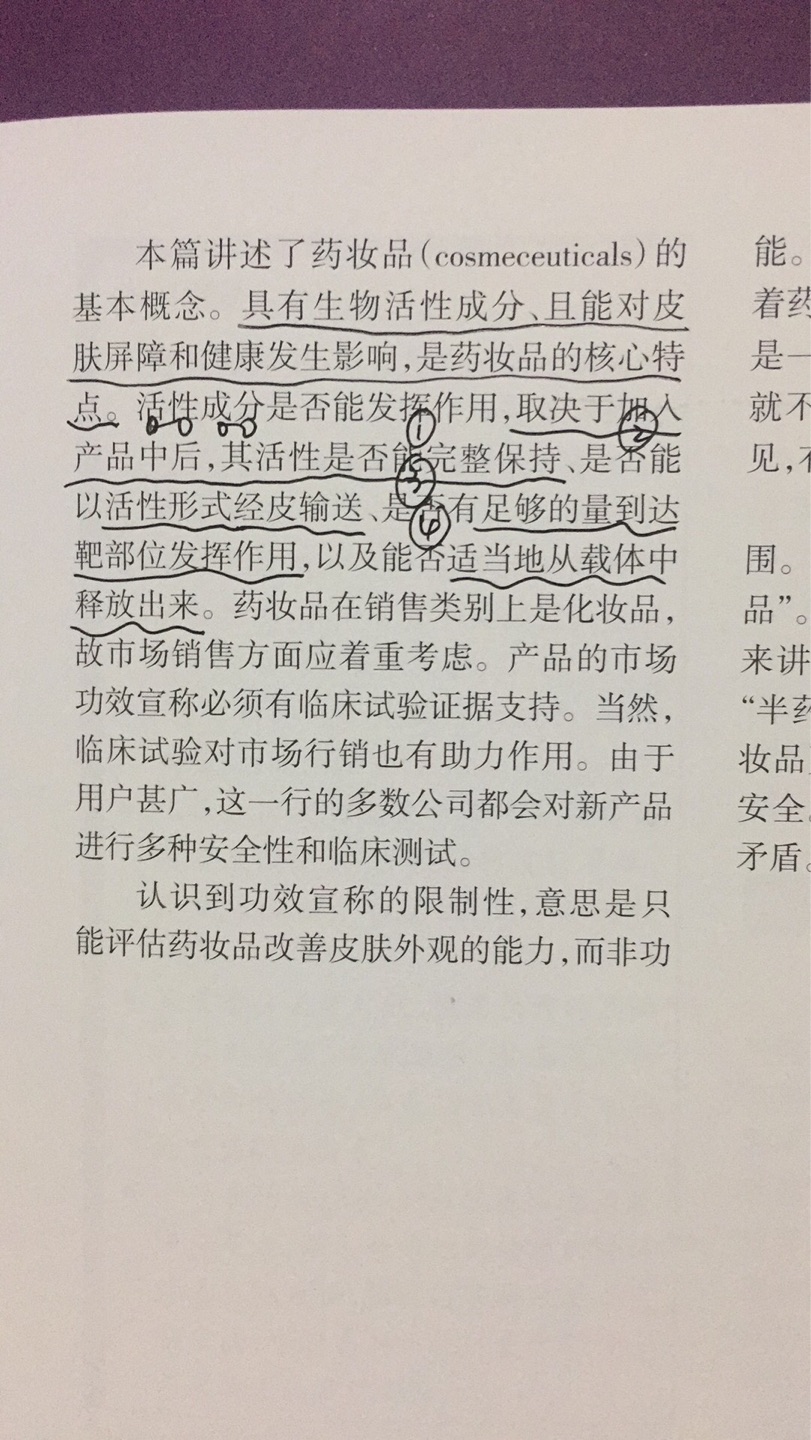 本篇讲述了药妆品(cosmeceuticals)的
基本概念。具有生物活性成分、且能对皮
肤屏障和健康发生影响,是药妆品的核心特
点。活性成分是否能发挥作用,取决于加入
①
②
产品中后,其活性是否能完整保持、是否能
③
以活性形式经皮输送、是否有足够的量到达
④
靶部位发挥作用,以及能否适当地从载体中
释放出来。药妆品在销售类别上是化妆品,
故市场销售方面应着重考虑。产品的市场
功效宣称必须有临床试验证据支持。当然,
临床试验对市场行销也有助力作用。由于
用户甚广,这一行的多数公司都会对新产品
进行多种安全性和临床测试。
认识到功效宣称的限制性,意思是只
能评估药妆品改善皮肤外观的能力,而非功
能。
着药
是一
就不
见,
围。
品”。
来讲
“半药
妆品
安全
矛盾。